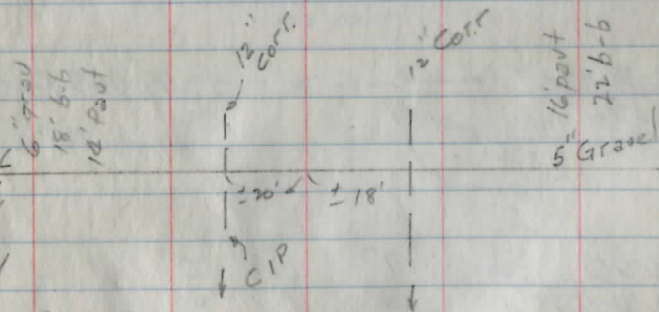 6" Grav
18' b-b
14' Pavt
12" Corr.
12" Corr
16' pavt
22' b-b
5" Gravel
±20'
±18'
CIP